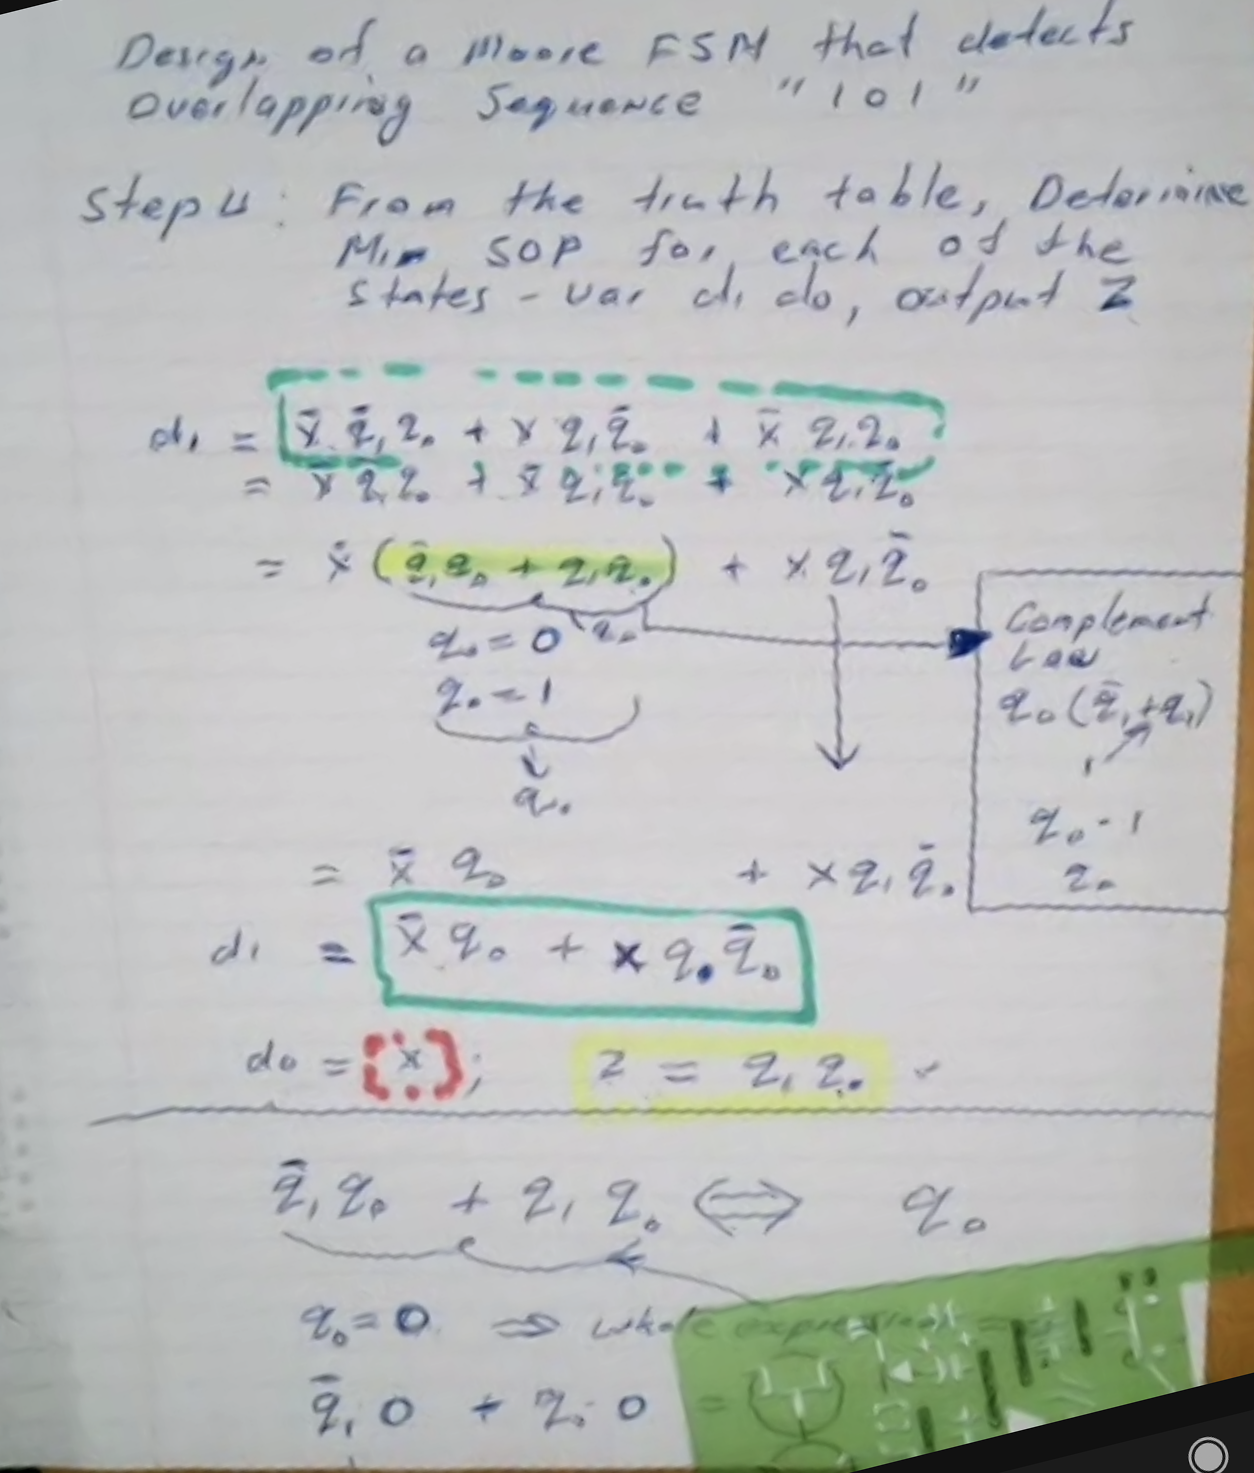 Design of a Moore FSM that detects
overlapping Sequence "101"
Step 4: From the truth table, Determine
Min SOP for each of the
States - var d₁ d₀, output Z
d₁ = x̄ q̄₁ q₀ + x q₁ q̄₀ + x̄ q₁ q₀
= x̄ q̄₁ q₀ + x̄ q₁ q₀ + x q₁ q̄₀
= x̄ (q̄₁ q₀ + q₁ q₀) + x q₁ q̄₀
q₀ = 0 q₀
q₀ = 1
q₀
Complement
Law
q₀ (q̄₁ + q₁)
1
q₀ · 1
q₀
= x̄ q₀ + x q₁ q̄₀
d₁ = x̄ q₀ + x q₁ q̄₀
d₀ = x; Z = q₁ q₀
q̄₁ q₀ + q₁ q₀ ⇔ q₀
q₀ = 0 ⇒ whole expression =
q̄₁ 0 + q₁ · 0 =